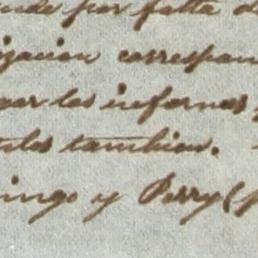 por falta d
izacion correspon
gar los informes
tulos tambien.
ingo y Perry (p